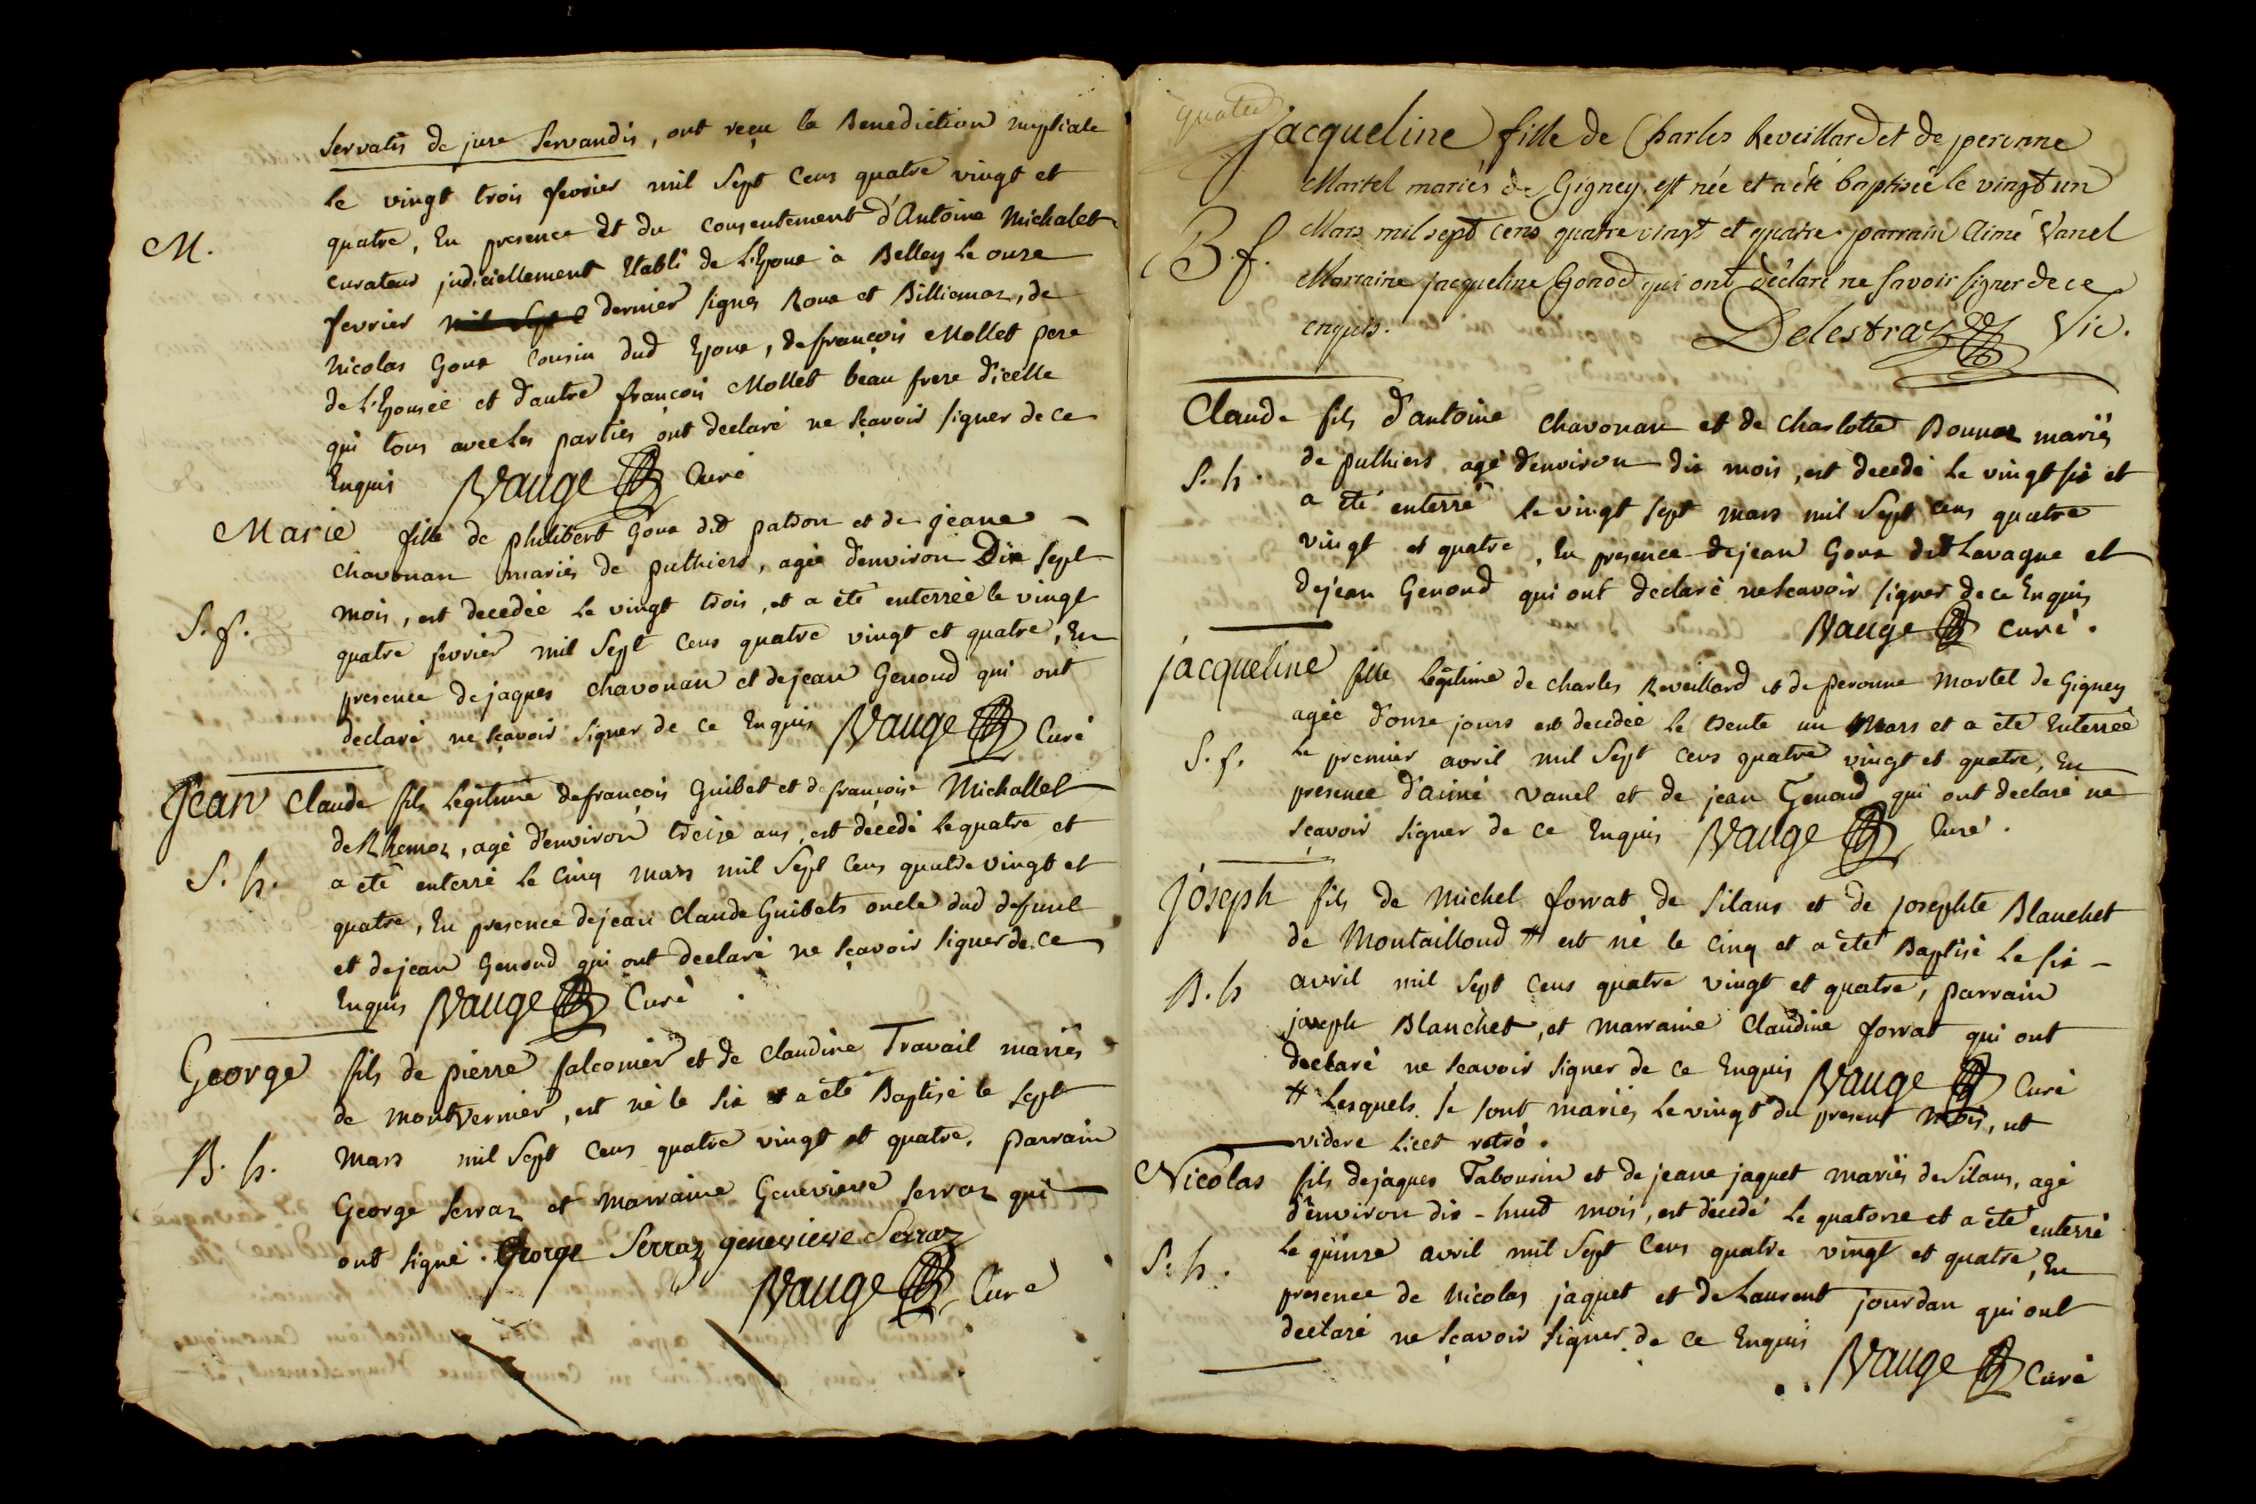 servatis de jure servandis, ont reçu la Benediction nuptiale
le vingt trois fevrier mil sept cens quatre vingt et
M.
quatre, En presence et du consentement d'Antoine Michalet
curateur judiciellement Etabli de L'Epoux à Belley Le onze
fevrier dernier signés Roux et Billiemaz, de
Nicolas Goux cousin dud Epoux, de françois Mollet pere
de L'Epousée et d'autre françois Mollet beau frere d'icelle
qui tous avec les parties ont declaré ne sçavoir signer de ce
Enquis Vauge Curé
Marie fille de philibert Goux dit patdon et de jeane
chavonan mariés de puthiers, agée d'environ Dix sept
S. f.
mois, est decedée le vingt trois, et a été enterrée le vingt
quatre fevrier mil sept cens quatre vingt et quatre, En
presence de jaques chavonan et de jean Genoud qui ont
declaré ne sçavoir signer de ce Enquis Vauge Curé
Jean claude fils legitime de françois Guibet et de françoise Michallet
de Rhemoz, agé d'environ treize ans, est decedé le quatre et
S. h.
a été enterré le cinq mars mil sept cens quatre vingt et
quatre, En presence de jean claude Guibets oncle dud defunt
et de jean Genoud qui ont declaré ne sçavoir signer de ce
Enquis Vauge Curé
George fils de pierre falconier et de claudine Travail mariés
de montvernier, est né le six et a été Baptisé le sept
B. h.
mars mil sept cens quatre vingt et quatre. parrain
George serraz et marraine Genevieve serraz qui
ont signé. George Serraz genevieve Serraz
Vauge Curé
quater
jacqueline fille de Charles Reveillard et de peronne
Martel mariés de Gigney est née et a été baptisée le vingt un
B. f.
Mars mil sept cens quatre vingt et quatre. parrain Aimé Vanel
Marraine jacqueline Gonod qui ont déclaré ne savoir signer de ce
enquis. Delestraz Vic.
Claude fils d'antoine chavonan et de charlotte Bonnaz mariés
S. h.
de puthiers agé d'environ dix mois, est decedé le vingt six et
a été enterré le vingt sept mars mil sept cens quatre
vingt et quatre, En presence de jean Goux dit Lavague et
de jean Genoud qui ont declaré ne sçavoir signer de ce Enquis
Vauge Curé.
jacqueline fille legitime de charles Reveillard et de peronne Martel de Gigney
agée d'onze jours est decedée le trente un Mars et a été Enterrée
S. f.
le premier avril mil sept cens quatre vingt et quatre, En
presence d'aimé vanel et de jean Genoud qui ont declaré ne
sçavoir signer de ce Enquis Vauge Curé.
joseph fils de Michel forrat de silans et de josephte Blanchet
de Montailloud # est né le cinq et a été Baptisé le six -
B. h
avril mil sept cens quatre vingt et quatre, parrain
joseph Blanchet, et marraine claudine forrat qui ont
declaré ne sçavoir signer de ce Enquis Vauge Curé
# Lesquels se sont mariés le vingt du present mois, ut
videre licet retrò.
Nicolas fils de jaques Tabousin et de jeane jaquet mariés de silans, agé
d'environ dix-huit mois, est decedé le quatorze et a été enterré
S. h.
le quinze avril mil sept cens quatre vingt et quatre, En
presence de Nicolas jaquet et de Laurent jourdan qui ont
declaré ne sçavoir signer de ce Enquis
Vauge Curé